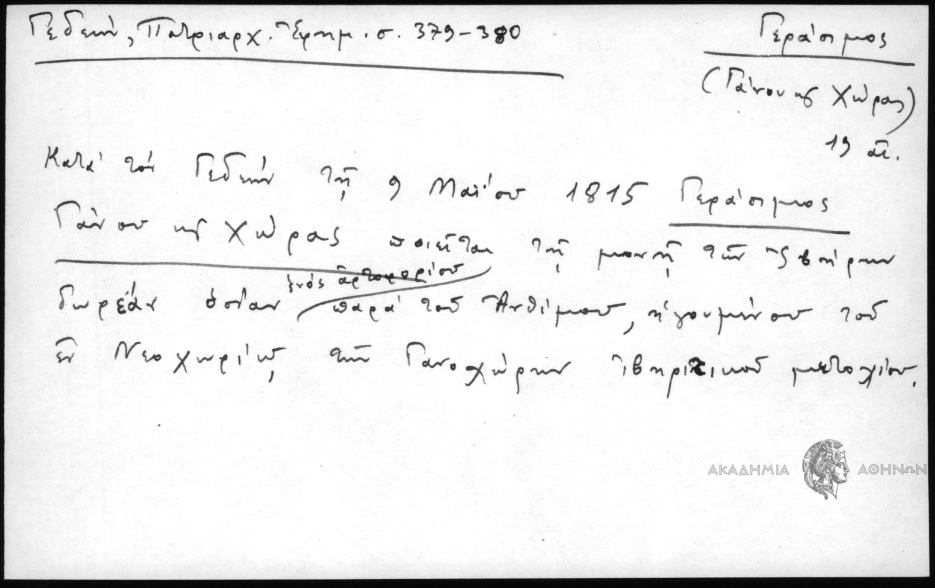 Γεδεών, Πατριαρχ. Ἐφημ. σ. 379-380
Γεράσιμος
(Γάνου κ Χώρας)
19 αἰ.
Κατά τόν Γεδεών τῇ 9 Μαΐου 1815 Γεράσιμος
Γάνου κ Χώρας ποιεῖται τῇ μονῇ τῶν Ἰβήρων
ἑνός ἀρτοφορίου
δωρεάν παρά τοῦ Ἀνθίμου, ἡγουμένου τοῦ
ἐν Νεοχωρίῳ, τῶν Γανοχώρων ἰβηριτικοῦ μετοχίου.
ΑΚΑΔΗΜΙΑ ΑΘΗΝΩΝ